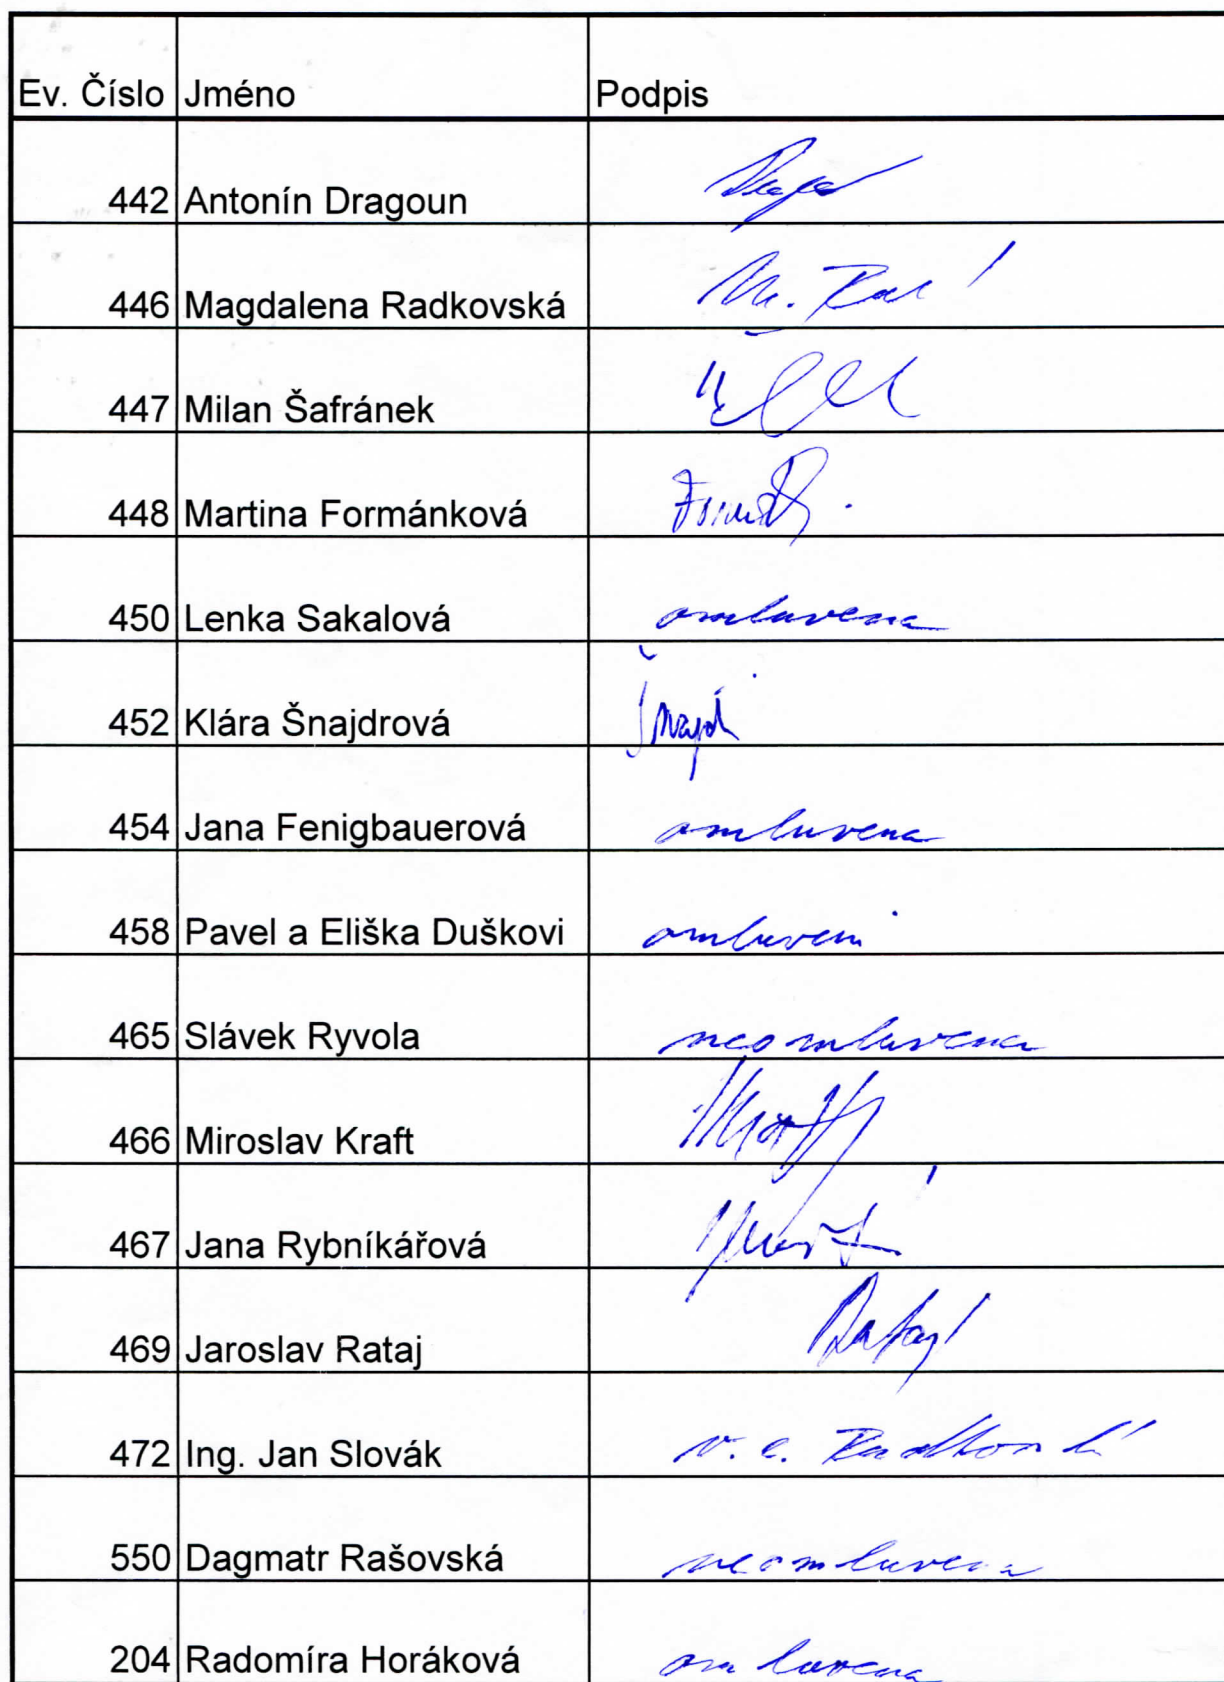 Ev. Číslo Jméno Podpis
442 Antonín Dragoun
446 Magdalena Radkovská
447 Milan Šafránek
448 Martina Formánková
450 Lenka Sakalová omluvena
452 Klára Šnajdrová Šnajd
454 Jana Fenigbauerová omluvena
458 Pavel a Eliška Duškovi omluveni
465 Slávek Ryvola neomluvena
466 Miroslav Kraft Kraft
467 Jana Rybníkářová
469 Jaroslav Rataj Rataj
472 Ing. Jan Slovák
550 Dagmatr Rašovská neomluvena
204 Radomíra Horáková omluvena